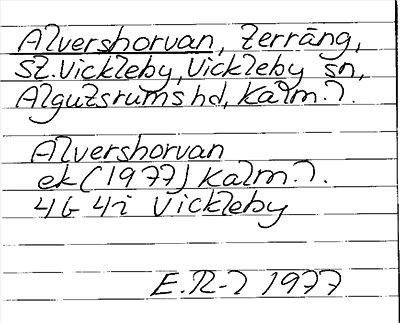 Alvershorvan, terräng,
St.Vickleby, Vickleby sn,
Algutsrums hd, Kalm. l.
Alvershorvan
ek (1977) Kalm. l.
4G 4i Vickleby
E.R-l 1977